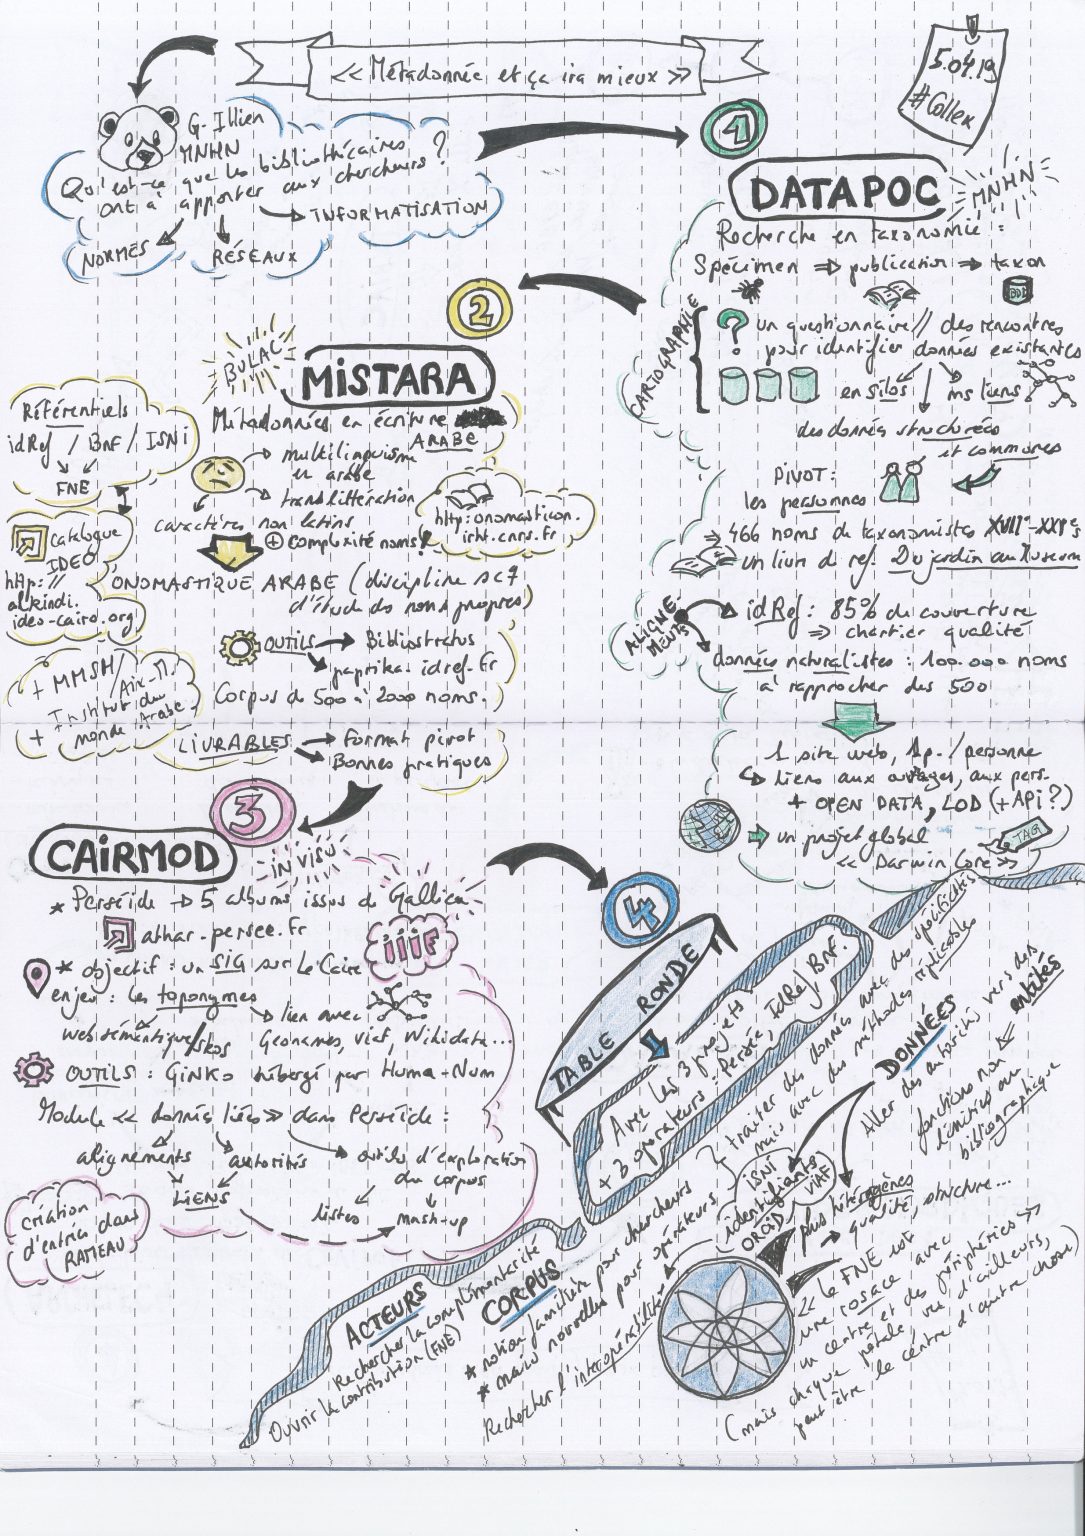 « Métadonnée et ça ira mieux »
5.04.19
#Collex
G. Illien
MNHN
Qu'est-ce que les bibliothécaires
ont à apporter aux chercheurs ?
NORMES
RÉSEAUX
INFORMATISATION
1
DATAPOC
MNHN
Recherche en taxonomie :
Spécimen ⇒ publication ⇒ taxon
BDD
CARTOGRAPHIE
? un questionnaire // des rencontres
pour identifier données existantes
en silos
ms liens
des données structurées
et communes
PIVOT :
les personnes
⇒ 466 noms de taxonomistes XVIIe-XXIe s
un livre de ref. Du jardin au Museum
ALIGNE-
MENTS
idRef : 85% de couverture
⇒ chantier qualité
données naturalistes : 100.000 noms
à rapprocher des 500
1 site web, 1 p. / personne
↳ liens aux ouvrages, aux pers.
+ OPEN DATA, LOD (+ API ?)
un projet global
« Darwin Core »
TAG
2
BULAC
MISTARA
Métadonnées en écriture
ARABE
multilinguisme
en arabe
translittération
caractères non latins
+ complexité noms !
http:onomasticon.
irht.cnrs.fr
Référentiels
idRef / BnF / ISNI
FNE
catalogue
IDEO
http://
alkindi.
ideo-cairo.org
+ MMSH / Aix-M.
+ Institut du
monde Arabe
ONOMASTIQUE ARABE (discipline sc
d'étude des noms propres)
OUTILS → Bibliostratus
paprika.idref.fr
Corpus de 500 à 2000 noms.
LIVRABLES → Format pivot
Bonnes pratiques
3
CAIRMOD
INVISU
* Perséide → 5 albums issus de Gallica
athar.persee.fr
iiif
* objectif : un SIG sur Le Caire
enjeu : les toponymes
web sémantique / skos
lien avec
Geonames, viaf, Wikidata...
OUTILS : GINKO hébergé par Huma-Num
Module « données liées » dans Perséide :
alignements
autorités
outils d'exploration
du corpus
LIENS
listes
mash-up
création
d'entrées dans
RAMEAU
4
TABLE RONDE
Avec les 3 projets
+ 3 opérateurs : Persée, IdRef, BnF.
ACTEURS
Rechercher la complémentarité
Ouvrir la contribution (FNE)
CORPUS
* notion familière pour chercheurs
* mais nouvelle pour opérateurs
Rechercher l'interopérabilité
DONNÉES
traiter des données avec des spécificités
mais avec des méthodes réplicables
Aller des autorités vers des entités
fonctions non
limitées au
bibliographique
ISNI
identifiants
ORCID
VIAF
plus hétérogènes
→ qualité, structure...
« Le FNE est
une rosace avec
un centre et des périphéries »
(mais chaque pétale, vu d'ailleurs,
peut être le centre d'autre chose)